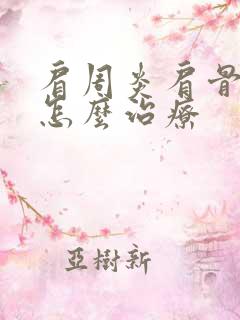 肩周炎肩骨
怎麼治療
亞樹新